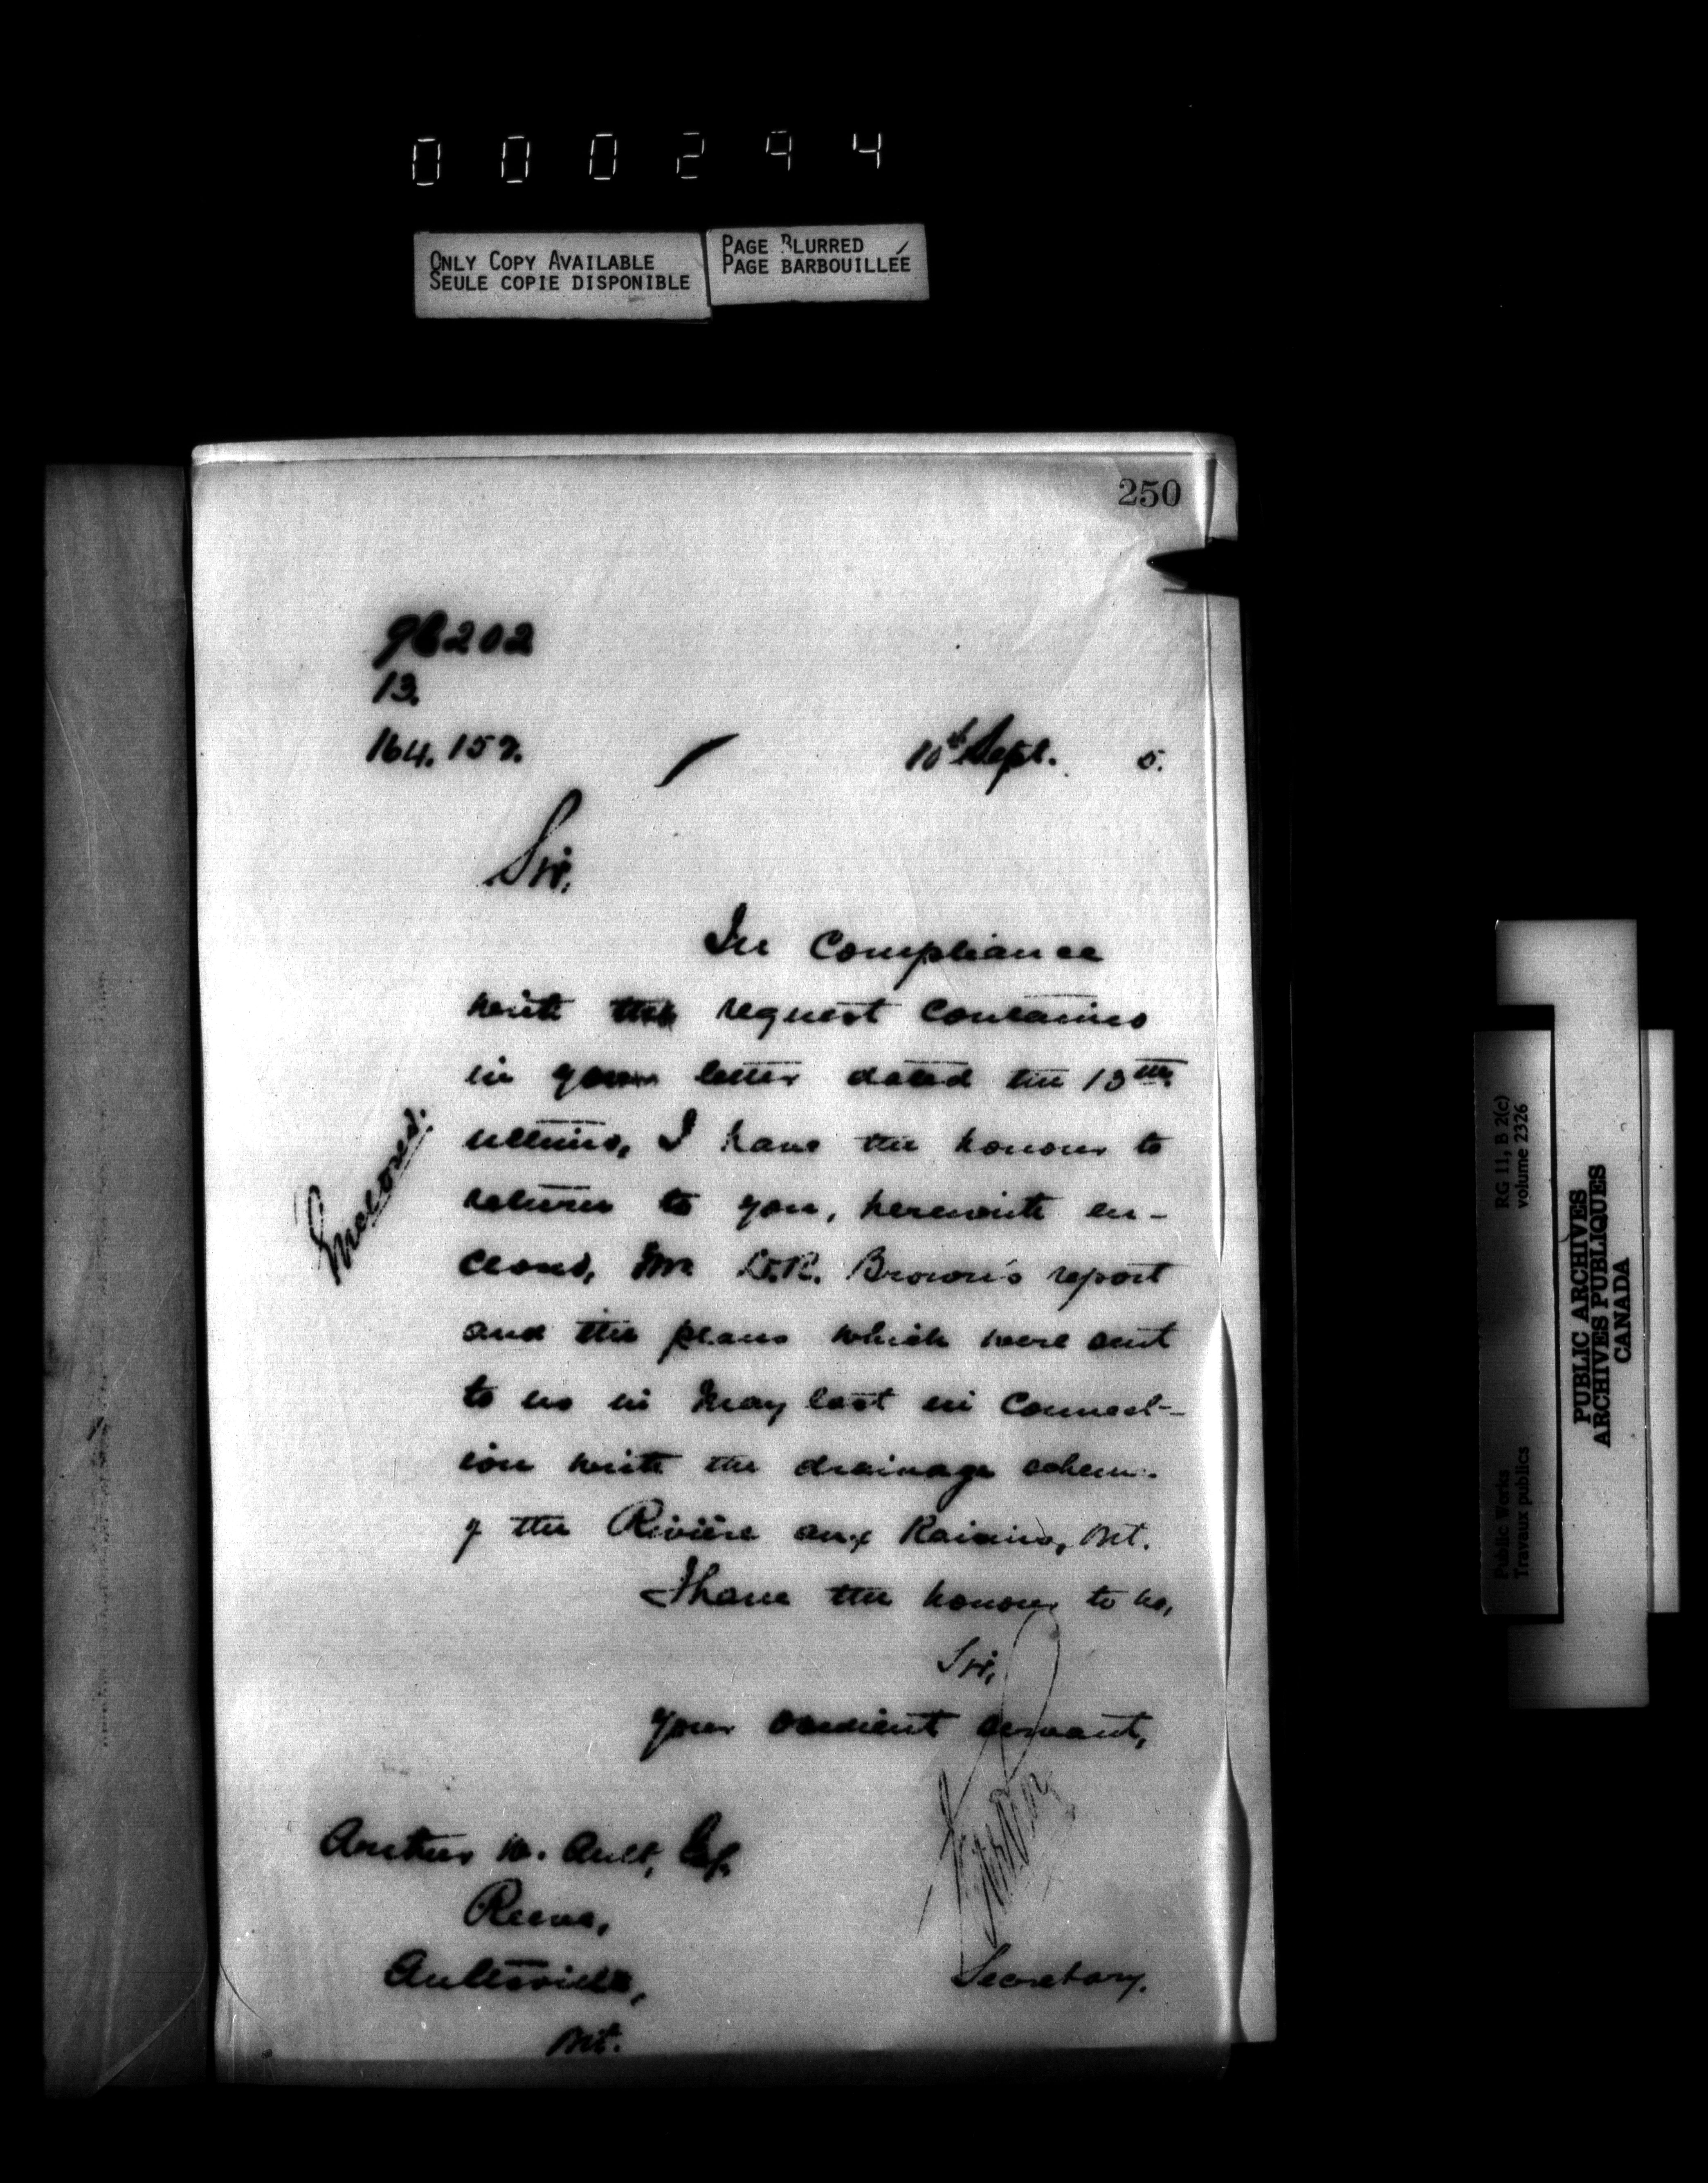 000294
ONLY COPY AVAILABLE
SEULE COPIE DISPONIBLE
PAGE BLURRED
PAGE BARBOUILLÉE
250
13.
164.157.
10th Sept. 5.
Sir,
In compliance
with the request contained
in your letter dated the 13th
ultimo, I have the honour to
return to you, herewith en-
closed, Mr D.R. Brown's report
and the plans which were sent
to us in May last in connect-
ion with the drainage scheme
of the Rivière aux Raisins, Ont.
I have the honour to be,
Sir,
Your obedient servant,
Enclosed.
Secretary.
Arthur W. Ault, Esq.
Reeve,
Aultsville,
Ont.
RG 11, B 2(c)
volume 2326
Public Works
Travaux publics
PUBLIC ARCHIVES
ARCHIVES PUBLIQUES
CANADA